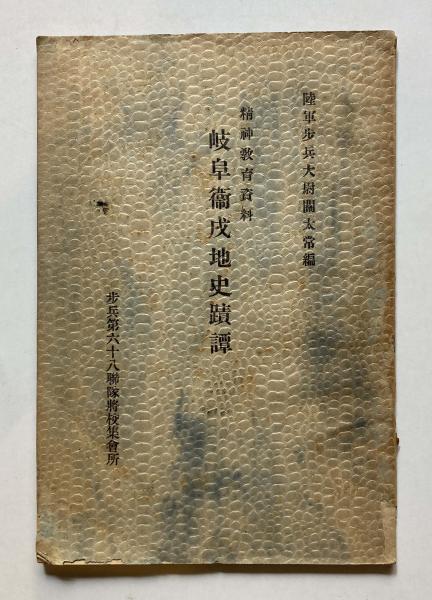 陸軍步兵大尉關太常編
精神教育資料
岐阜衞戍地史蹟譚
步兵第六十八聯隊將校集會所